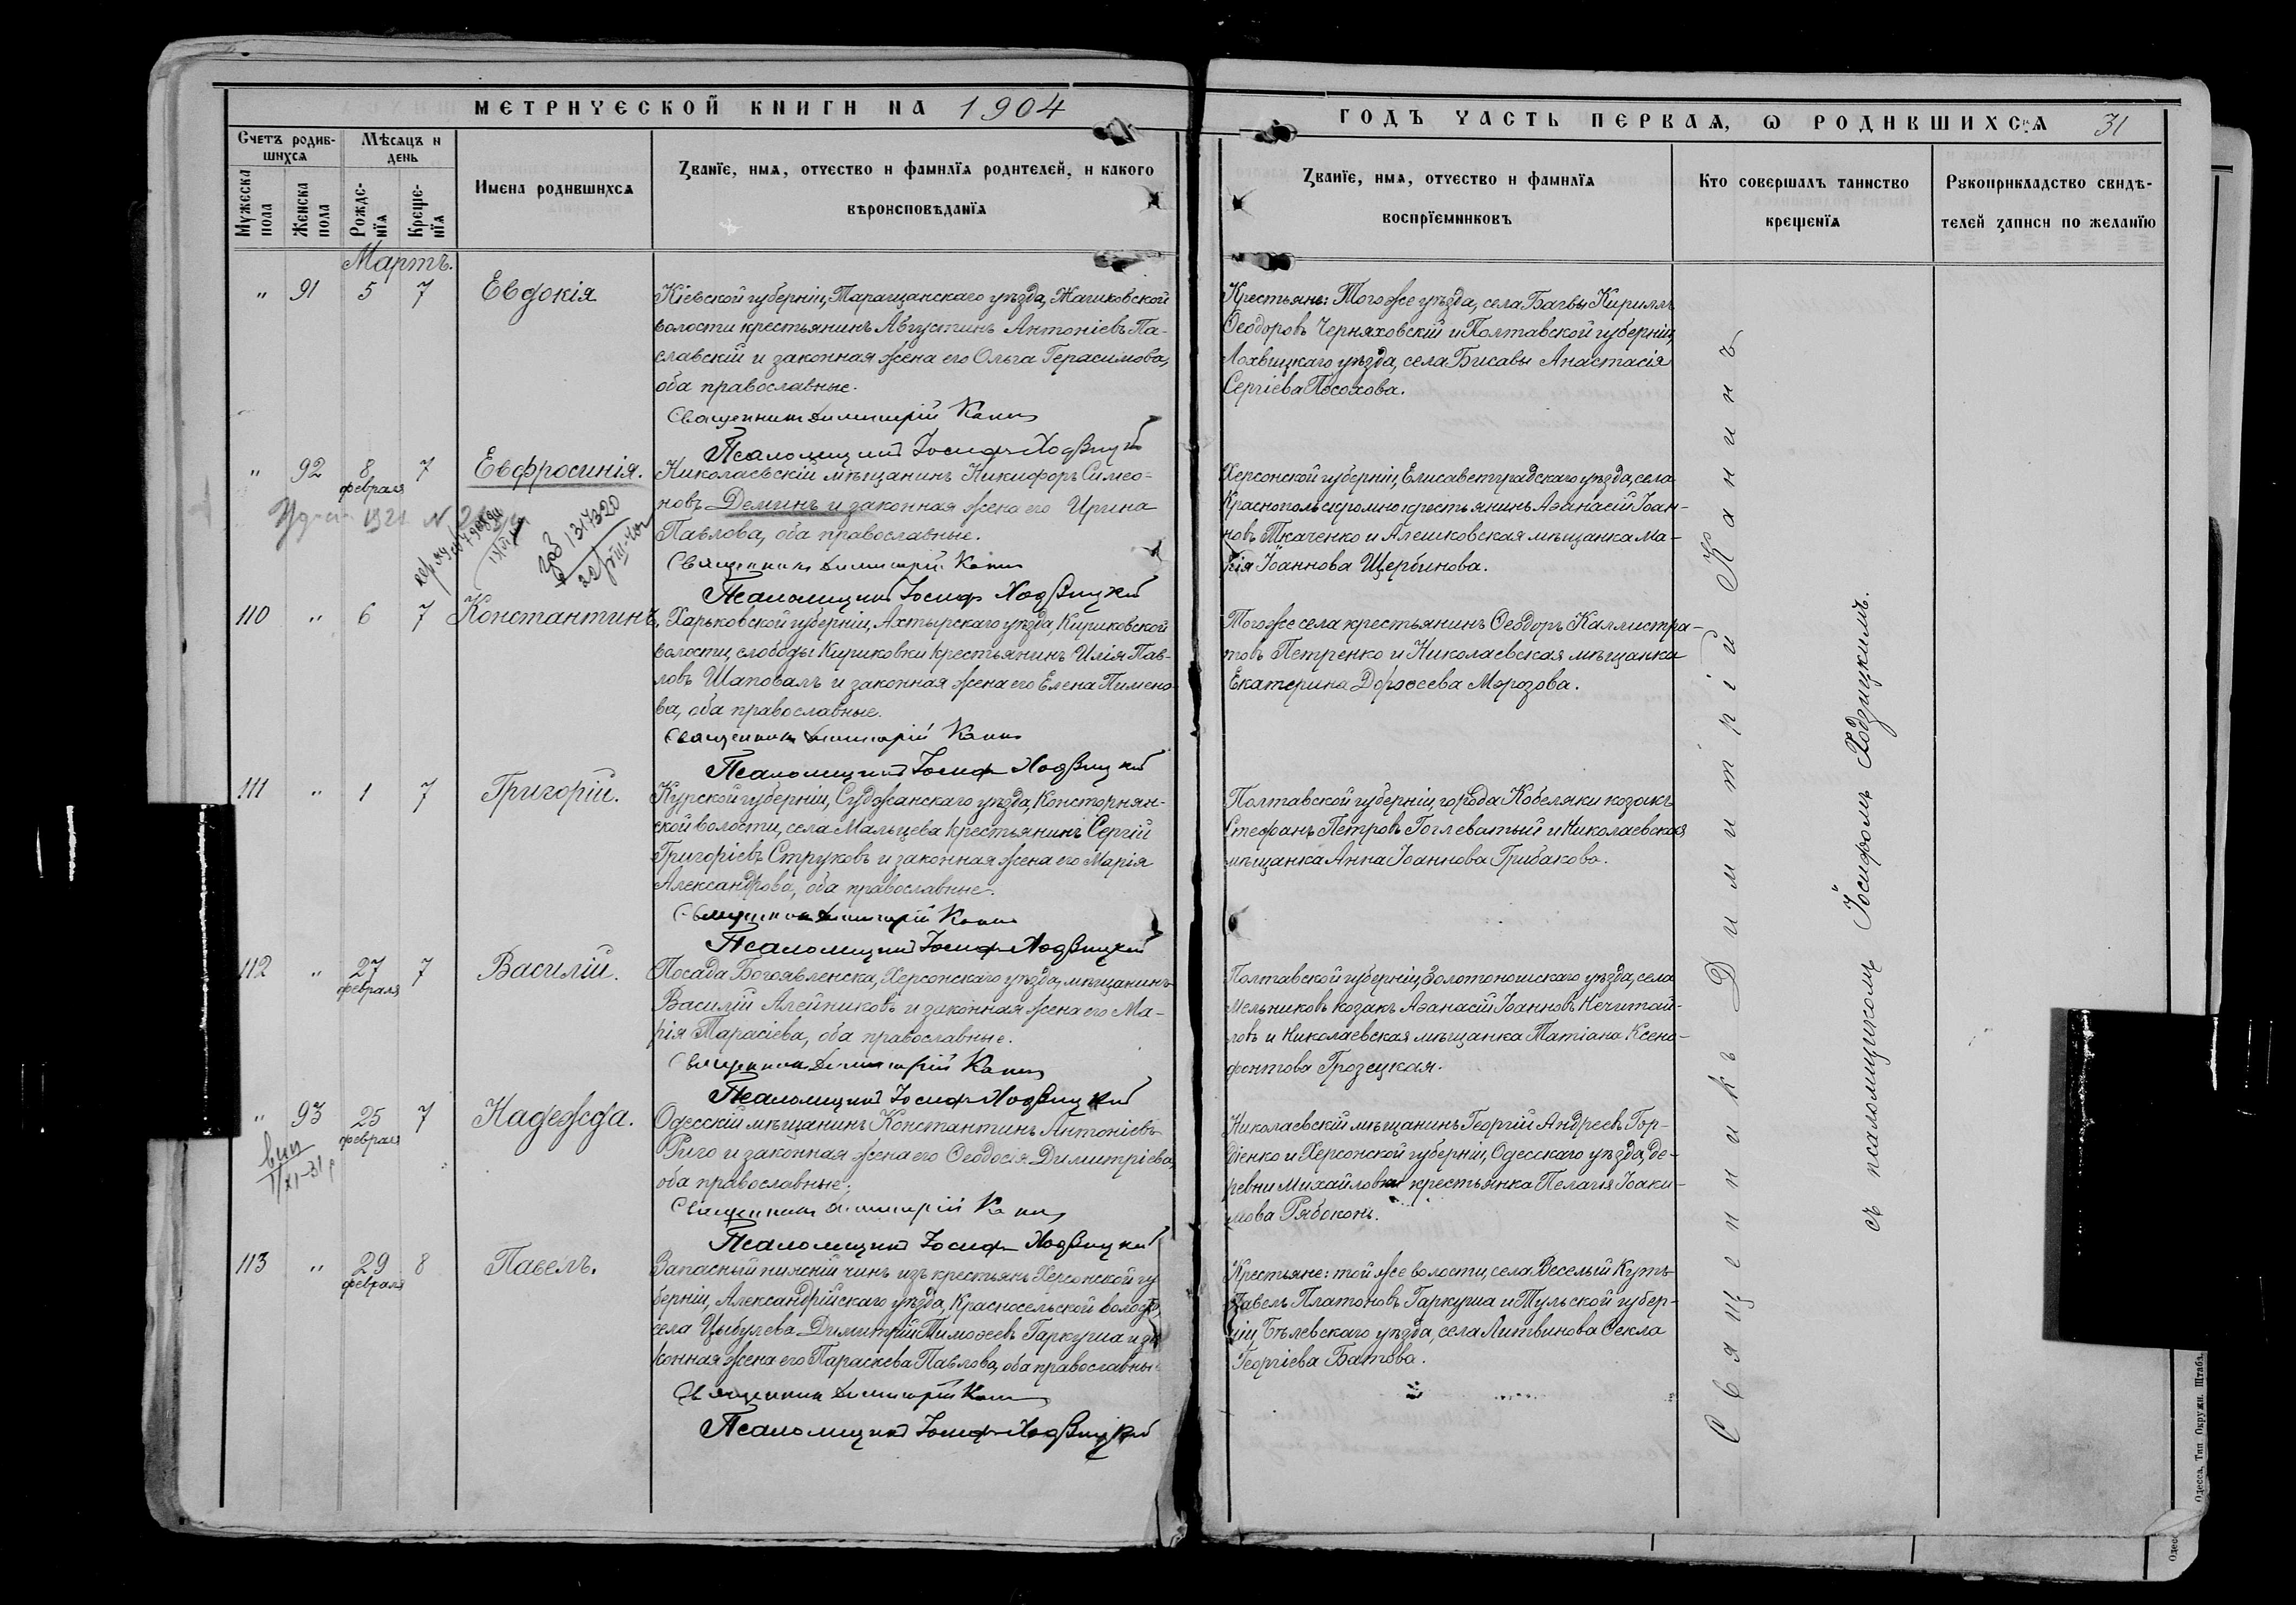 МЕТРИЧЕСКОЙ КНИГИ НА 1904
ГОДЪ ЧАСТЬ ПЕРВАЯ, Ѡ РОДИВШИХСЯ 31
Счетъ родившихся
Мѣсяцъ и день
Мужеска пола
Женска пола
Рожденїя
Крещенїя
Имена родившихся
Званїе, имя, отчество и фамилїя родителей, и какого
вѣроисповѣданїя
Званїе, имя, отчество и фамилїя
воспрїемниковъ
Кто совершалъ таинство
крещенїя
Рукоприкладство свидѣ-
телей записи по желанїю
Мартъ.
" 91 5 7 Евдокія
Кіевской губерніи, Таращанскаго уѣзда, Жашковской
волости крестьянинъ Августинъ Антоніевъ Па-
славскій и законная жена его Ольга Герасимова,
оба православные.
Священникъ Димитрій Канинъ
Псаломщикъ Іосифъ Ходзицкій
Крестьяне: Того же уѣзда, села Багвы Кириллъ
Ѳеодоровъ Черняховскій и Полтавской губерніи,
Лохвицкаго уѣзда, села Бисавы Анастасія
Сергіева Посохова.
" 92 8 февраля 7 Евфросинія.
Николаевскій мѣщанинъ Никифоръ Симео-
новъ Деминъ и законная жена его Ирина
Павлова, оба православные.
Священникъ Димитрій Канинъ
Псаломщикъ Іосифъ Ходзицкій
1317320
Херсонской губерніи, Елисаветградскаго уѣзда, села
Краснополь скромно крестьянинъ Аѳанасій Іоан-
новъ Ткаченко и Алешковская мѣщанка Ма-
рія Іоаннова Щербинова.
110 " 6 7 Константинъ,
Харьковской губерніи, Ахтырскаго уѣзда, Кириковской
волости, слободы Кириковки крестьянинъ Илія Пав-
ловъ Шаповалъ и законная жена его Елена Пимено-
ва, оба православные.
Священникъ Димитрій Канинъ
Псаломщикъ Іосифъ Ходзицкій
Того же села крестьянинъ Ѳеодоръ Каллистра-
товъ Петренко и Николаевская мѣщанка
Екатерина Дороѳеева Морозова.
111 " 1 7 Григорій.
Курской губерніи, Суджанскаго уѣзда, Консторнян-
ской волости, села Мальцева крестьянинъ Сергій
Григоріевъ Струковъ и законная жена его Марія
Александрова, оба православные.
Священникъ Димитрій Канинъ
Псаломщикъ Іосифъ Ходзицкій
Полтавской губерніи, города Кобеляки козакъ
Стефанъ Петровъ Гоглеватый и Николаевская
мѣщанка Анна Іоаннова Грибакова.
112 " 27 февраля 7 Василій.
Посада Богоявленска, Херсонскаго уѣзда, мѣщанинъ
Василій Алейниковъ и законная жена его Ма-
рія Тарасіева, оба православные.
Священникъ Димитрій Канинъ
Псаломщикъ Іосифъ Ходзицкій
Полтавской губерніи, Золотоношскаго уѣзда, села
Мельниковъ козакъ Аѳанасій Іоанновъ Нечитай-
ловъ и Николаевская мѣщанка Татіана Ксено-
фонтова Грозецкая.
" 93 25 февраля 7 Надежда.
Одесскій мѣщанинъ Константинъ Антоніевъ
Риго и законная жена его Ѳеодосія Димитріева,
оба православные.
Священникъ Димитрій Канинъ
Псаломщикъ Іосифъ Ходзицкій
Николаевскій мѣщанинъ Георгій Андреевъ Гор-
діенко и Херсонской губерніи, Одесскаго уѣзда, де-
ревни Михайловки крестьянка Пелагія Іоаки-
мова Рябоконь.
113 " 29 февраля 8 Павелъ.
Запасный нижній чинъ изъ крестьянъ Херсонской гу
берніи, Александрійскаго уѣзда, Красносельской волости,
села Цыбулева Димитрій Тимоѳеевъ Гаркуша и за
конная жена его Параскева Павлова, оба православны
Священникъ Димитрій Канинъ
Псаломщикъ Іосифъ Ходзицкій
Крестьяне: той же волости, села Веселый Кутъ
Павелъ Платоновъ Гаркуша и Тульской губер-
ніи, Бѣлевскаго уѣзда, села Литвинова Ѳекла
Георгіева Батова.
Священникъ Димитрій Канинъ
съ псаломщикомъ Іосифомъ Ходзицкимъ.
Одесса, Тип. Окружн. Штаба.